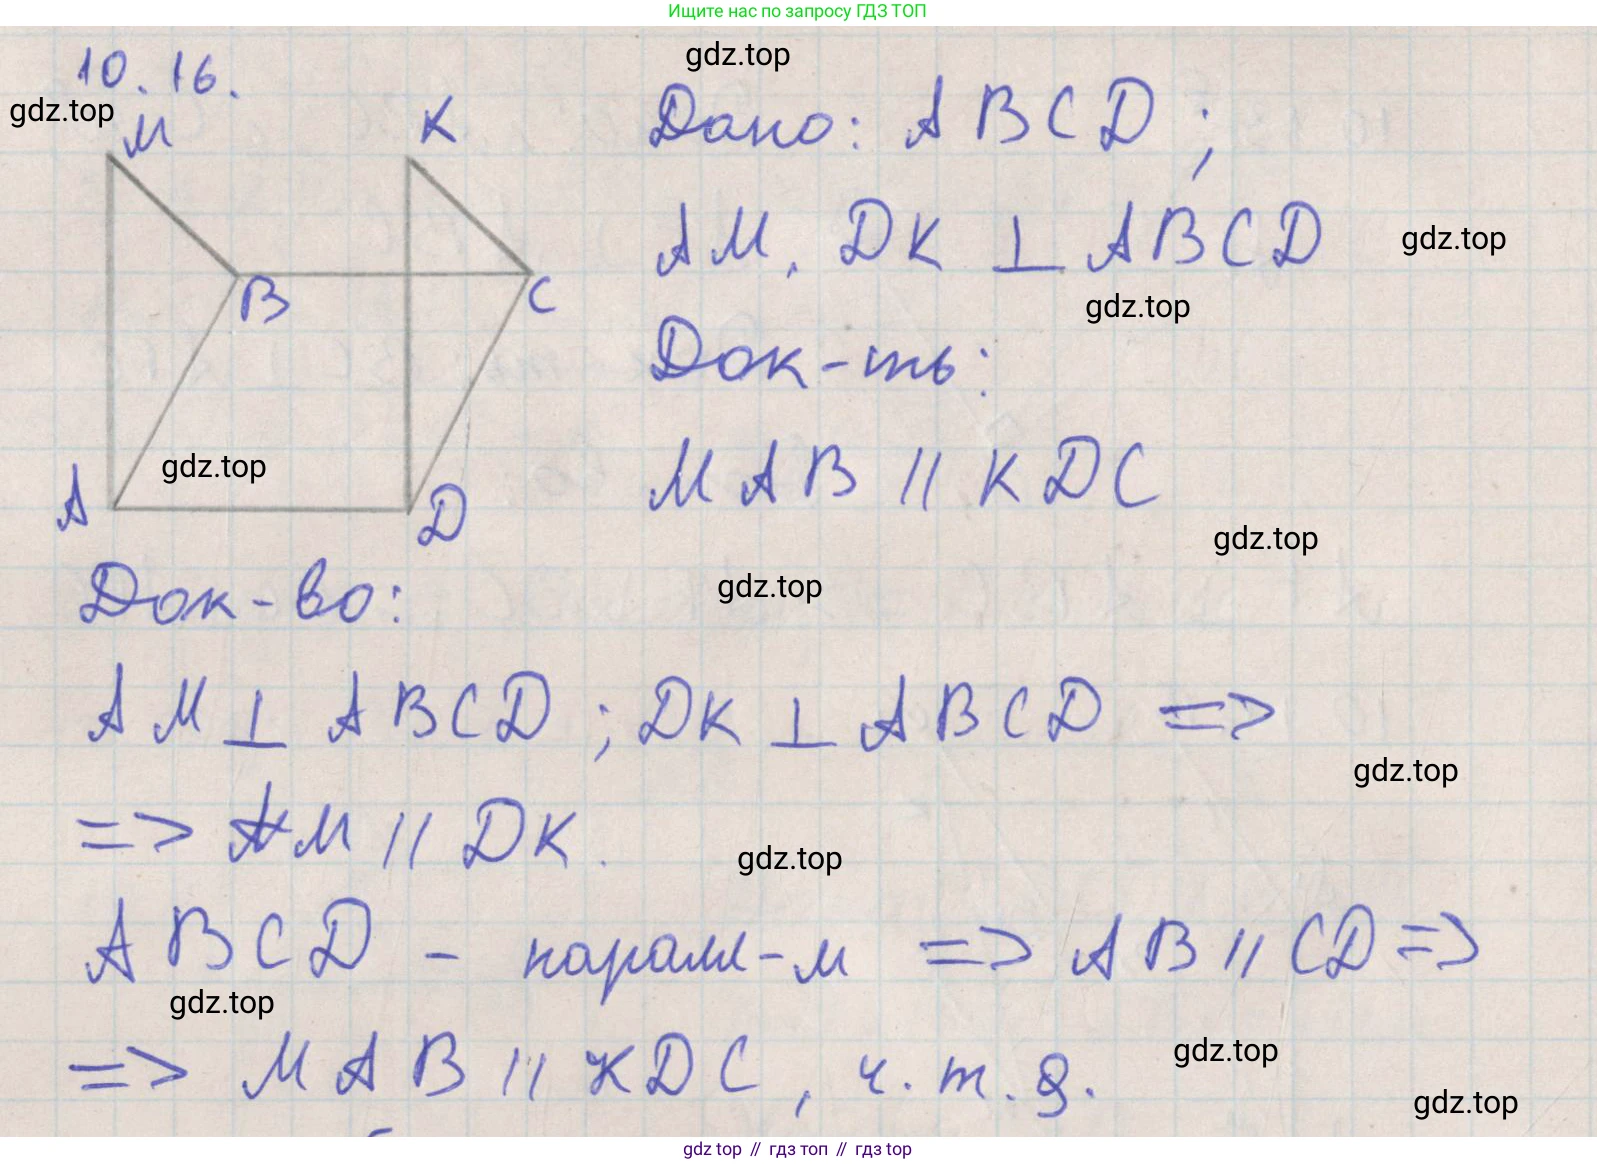 Ищите нас по запросу ГДЗ ТОП
10.16.
gdz.top
gdz.top
M
K
Дано: ABCD;
B
C
AM, DK ⊥ ABCD
gdz.top
gdz.top
Док-ть:
gdz.top
A
D
MAB // KDC
gdz.top
Док-во:
gdz.top
AM ⊥ ABCD; DK ⊥ ABCD =>
gdz.top
=> AM // DK.
gdz.top
ABCD - паралл-м => AB // CD =>
gdz.top
=> MAB // KDC, ч.т.д.
gdz.top
gdz.top
gdz top // гдз топ // gdz top